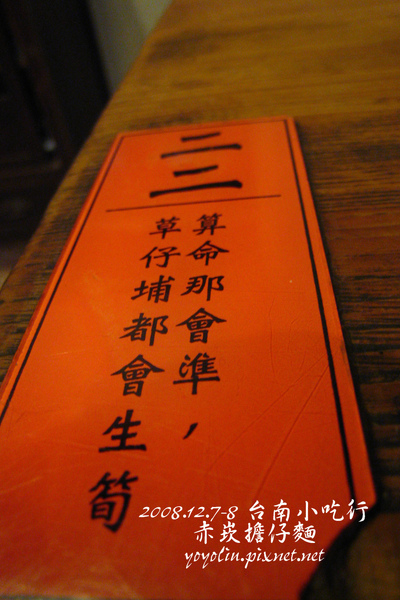 二二
算命那會準，
草仔埔都會生筍
2008.12.7-8 台南小吃行
赤崁擔仔麵
yoyolin.pixnet.net